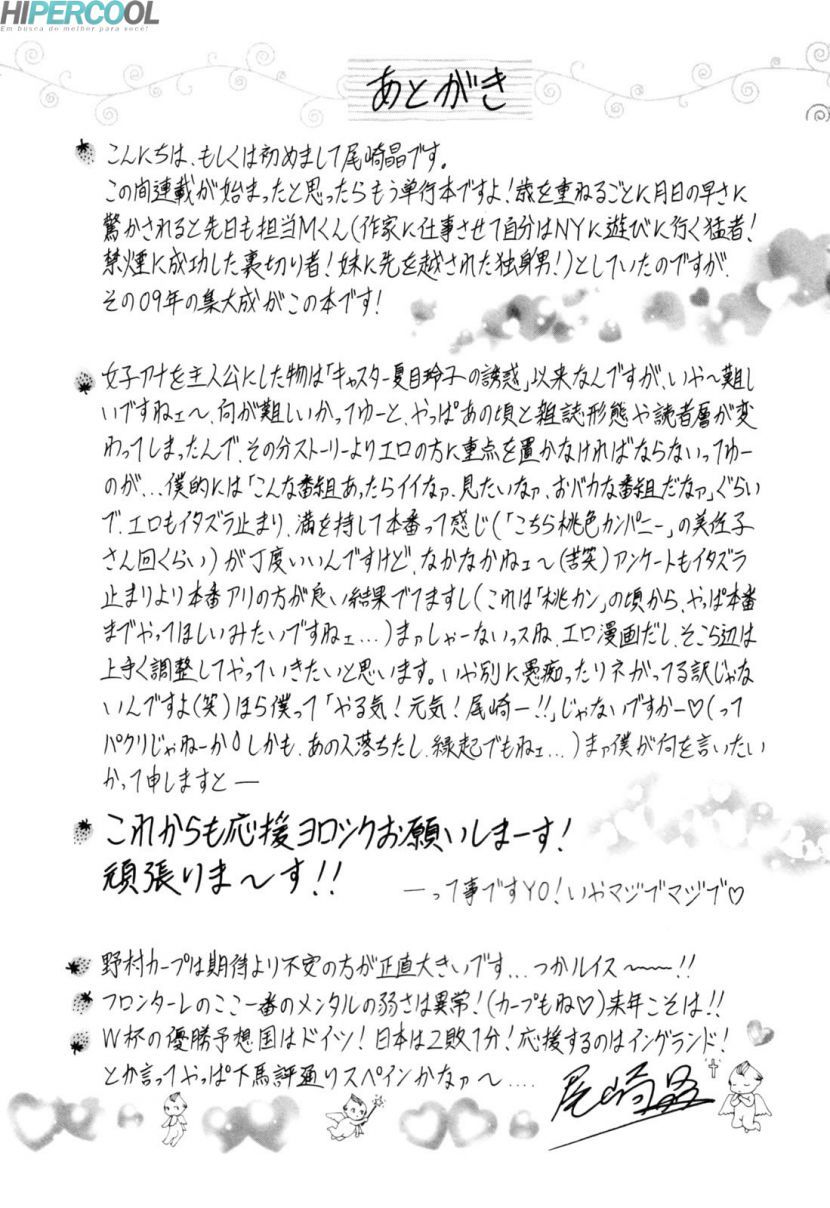 HIPERCOOL
Em busca do melhor para você!
あとがき
こんにちは、もしくは初めまして尾崎晶です。
この間連載が始まったと思ったらもう単行本ですよ!歳を重ねるごとに月日の早さに
驚かされると先日も担当Mくん(作家に仕事させて自分はNYに遊びに行く猛者!
禁煙に成功した裏切り者!妹に先を越された独身男!)としていたのですが、
その09年の集大成がこの本です!
女子アナを主人公にした物は「キャスター夏目玲子の誘惑」以来なんですが、いや〜難し
いですねェ〜、何が難しいかってゆーと、やっぱあの頃と雑誌形態や読者層が変
わってしまったんで、その分ストーリーよりエロの方に重点を置かなければならないってゆー
のが...僕的には「こんな番組あったらイイなァ、見たいなァ、おバカな番組だなァ」ぐらい
で、エロもイタズラ止まり、満を持して本番って感じ(「こちら桃色カンパニー」の美佐子
さん回くらい)が丁度いいんですけど、なかなかねェ〜(苦笑)アンケートもイタズラ
止まりより本番アリの方が良い結果でてますし(これは「桃カン」の頃から、やっぱ本番
までやってほしいみたいですねェ...)まァしゃーないっスね、エロ漫画だし、そこら辺は
上手く調整してやっていきたいと思います。いや別に愚痴ったりネガってる訳じゃな
いんですよ(笑)ほら僕って「やる気!元気!尾崎ー!!」じゃないですかー♡(って
パクリじゃねーか しかも、あの人落ちたし、縁起でもねェ...)まァ僕が何を言いたい
かって申しますと―
これからも応援ヨロシクお願いしまーす!
頑張りま〜す!!
―って事ですYO!いやマジブマジブ♡
野村カープは期待より不安の方が正直大きいです...つかルイス〜〜!!
フロンターレのここ一番のメンタルの弱さは異常!(カープもね♡)来年こそは!!
W杯の優勝予想国はドイツ!日本は2敗1分!応援するのはイングランド!
とか言ってやっぱ下馬評通りスペインかなァ〜....
尾崎晶